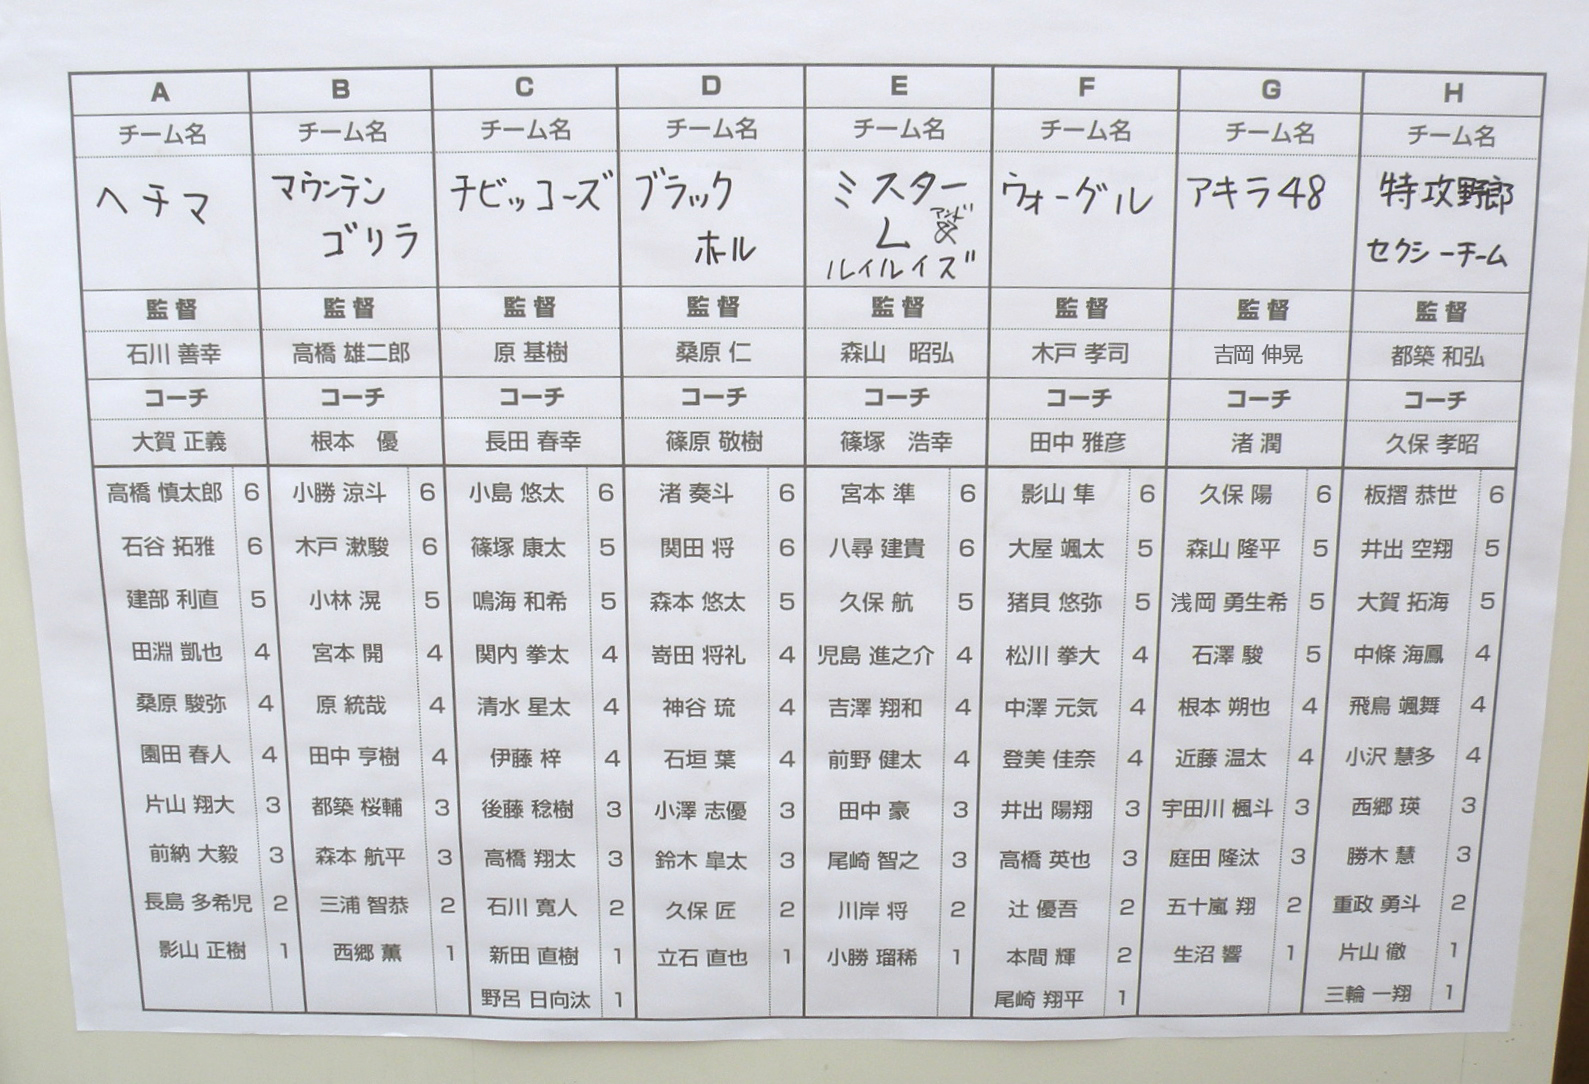 A B C D E F G H
チーム名 チーム名 チーム名 チーム名 チーム名 チーム名 チーム名 チーム名
ヘチマ マウンテン チビッコーズ ブラック ミスター ウォーグル アキラ48 特攻野郎
ゴリラ ホール ム アンド& セクシーチーム
ルイルイズ
監督 監督 監督 監督 監督 監督 監督 監督
石川 善幸 高橋 雄二郎 原 基樹 桑原 仁 森山 昭弘 木戸 孝司 吉岡 伸晃 都築 和弘
コーチ コーチ コーチ コーチ コーチ コーチ コーチ コーチ
大賀 正義 根本 優 長田 春幸 篠原 敬樹 篠塚 浩幸 田中 雅彦 渚 潤 久保 孝昭
高橋 慎太郎 6 小勝 涼斗 6 小島 悠太 6 渚 奏斗 6 宮本 準 6 影山 隼 6 久保 陽 6 板摺 恭世 6
石谷 拓雅 6 木戸 漱駿 6 篠塚 康太 5 関田 将 6 八尋 建貴 6 大屋 颯太 5 森山 隆平 5 井出 空翔 5
建部 利直 5 小林 滉 5 鳴海 和希 5 森本 悠太 5 久保 航 5 猪貝 悠弥 5 浅岡 勇生希 5 大賀 拓海 5
田淵 凱也 4 宮本 開 4 関内 拳太 4 嵜田 将礼 4 児島 進之介 4 松川 拳大 4 石澤 駿 5 中條 海鳳 4
桑原 駿弥 4 原 統哉 4 清水 星太 4 神谷 琉 4 吉澤 翔和 4 中澤 元気 4 根本 朔也 4 飛鳥 颯舞 4
園田 春人 4 田中 亨樹 4 伊藤 梓 4 石垣 葉 4 前野 健太 4 登美 佳奈 4 近藤 温太 4 小沢 慧多 4
片山 翔大 3 都築 桜輔 3 後藤 稔樹 3 小澤 志優 3 田中 豪 3 井出 陽翔 3 宇田川 楓斗 3 西郷 瑛 3
前納 大毅 3 森本 航平 3 高橋 翔太 3 鈴木 皐太 3 尾崎 智之 3 高橋 英也 3 庭田 隆汰 3 勝木 慧 3
長島 多希児 2 三浦 智恭 2 石川 寛人 2 久保 匠 2 川岸 将 2 辻 優吾 2 五十嵐 翔 2 重政 勇斗 2
影山 正樹 1 西郷 薫 1 新田 直樹 1 立石 直也 1 小勝 瑠稀 1 本間 輝 2 生沼 響 1 片山 徹 1
野呂 日向汰 1 尾崎 翔平 1 三輪 一翔 1